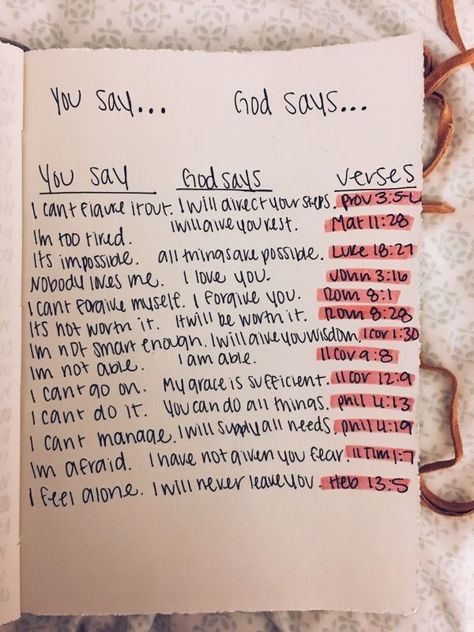 You say... God says...
You say God says verses
I cant figure it out. I will direct your steps. Prov 3:5-6
Im too tired. I will give you rest. Mat 11:28
Its impossible. all things are possible. Luke 18:27
Nobody loves me. I love you. John 3:16
I cant forgive myself. I forgive you. Rom 8:1
Its not worth it. It will be worth it. Rom 8:28
Im not smart enough. I will give you wisdom. I cor 1:30
Im not able. I am able. II cor 9:8
I cant go on. My grace is sufficient. II cor 12:9
I cant do it. You can do all things. phil 4:13
I cant manage. I will supply all needs phil 4:19
Im afraid. I have not given you fear. II Tim 1:7
I feel alone. I will never leave you. Heb 13:5